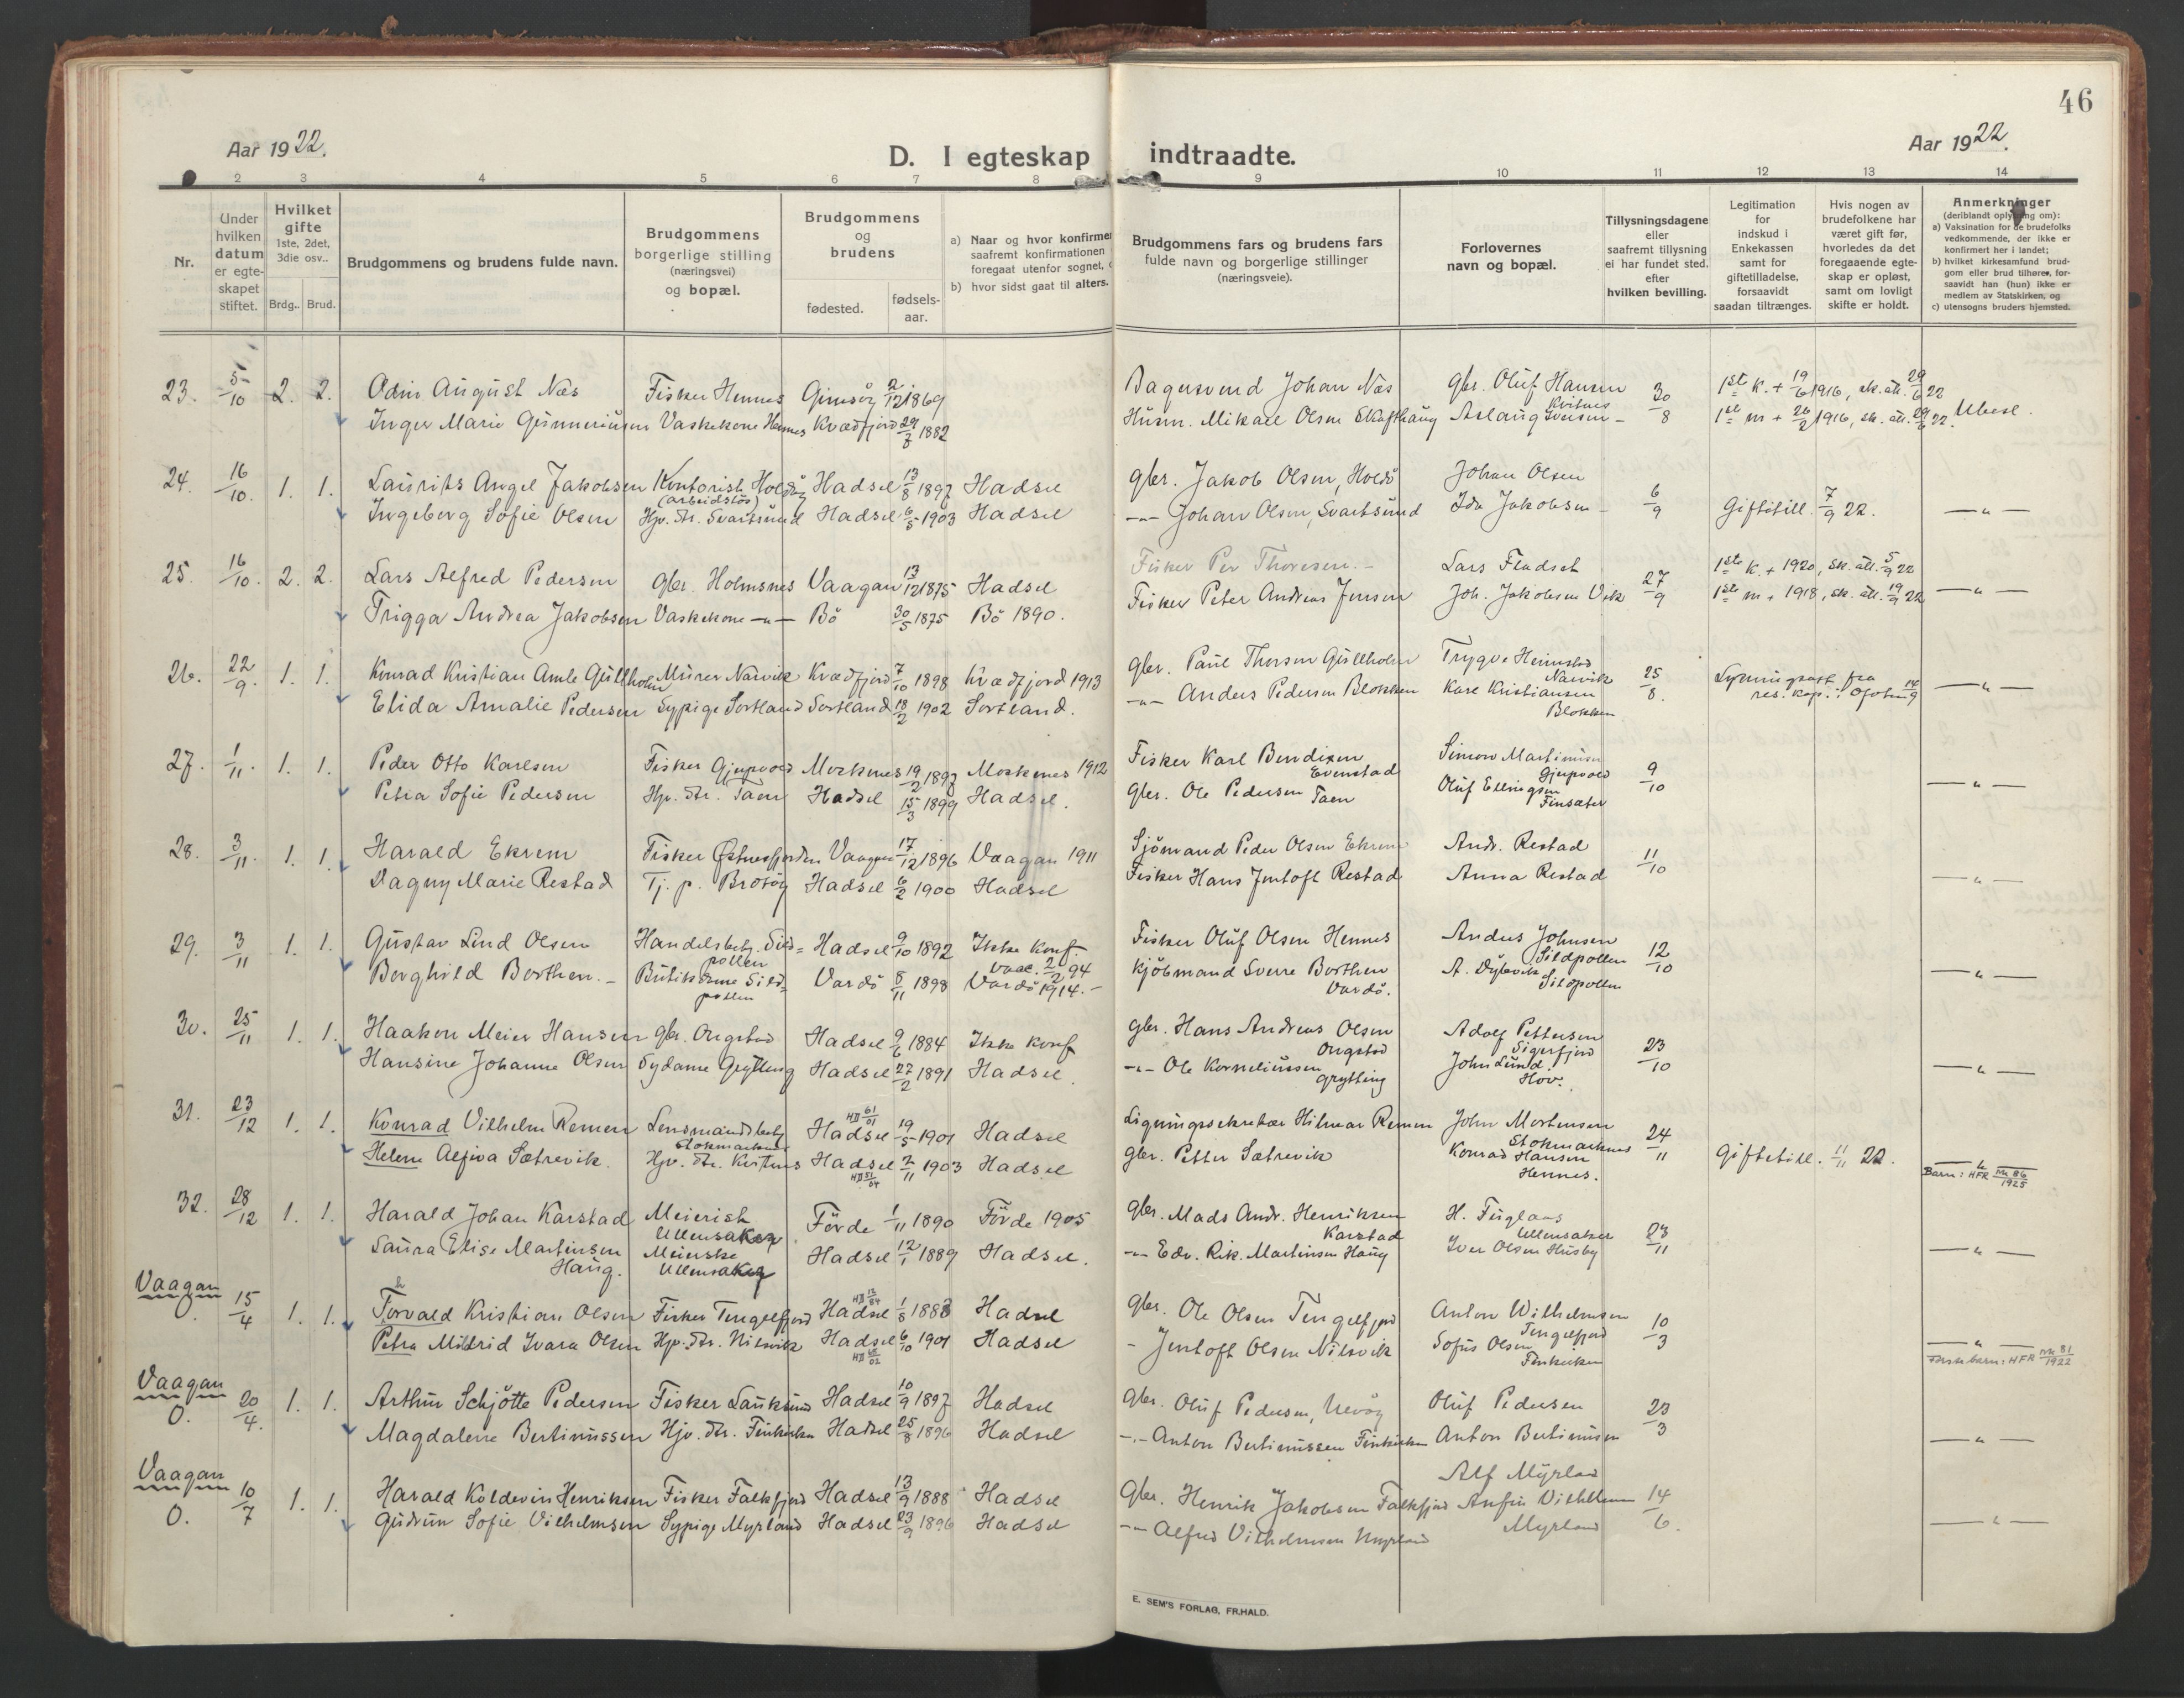 46
Aar 1922.
D. I egteskap indtraadte.
Aar 1922.
2 3 4 5 6 7 8 9 10 11 12 13 14
Nr.
Under hvilken datum er egteskapet stiftet.
Hvilket gifte
1ste, 2det, 3die osv..
Brdg.. Brud.
Brudgommens og brudens fulde navn.
Brudgommens borgerlige stilling (næringsvei) og bopæl.
Brudgommens og brudens
fødested.
fødsels-aar.
a) Naar og hvor konfirmer
saafremt konfirmationen
foregaat utenfor sognet,
b) hvor sidst gaat til alters.
Brudgommens fars og brudens fars
fulde navn og borgerlige stillinger
(næringsveie).
Forlovernes
navn og bopæl.
Tillysningsdagene
eller
saafremt tillysning
ei har fundet sted.
efter
hvilken bevilling.
Legitimation
for
indskud i
Enkekassen
samt for
giftetilladelse,
forsaavidt
saadan tiltrænges.
Hvis nogen av
brudefolkene har
været gift før,
hvorledes da det
foregaaende egte-
skap er opløst,
samt om lovligt
skifte er holdt.
Anmerkninger
(deriblandt oplysning om):
a) Vaksination for de brudefolks
vedkommende, der ikke er
konfirmert her i landet;
b) hvilket kirkesamfund brud-
gom eller brud tilhører, for-
saavidt han (hun) ikke er
medlem av Statskirken, og
c) utensogns bruders hjemsted.
23. 5/10 2. 2. Odin August Næs Fisker Hennes Gimsøy 2/12 1869 Bagnsund Johan Næs gbr. Oluf Hansen 30/8 1ste k. + 19/6 1916, sk. att. 29/6 22
Inger Marie Gunneriusen Vaskekone Hennes Kvædfjord 29/7 1882 Husm. Mikael Olsen Skafthaug Aslaug Iversen - Kvitnes 1ste m + 26/2 1916, sk. att. 29/6 22. Ubesl.
24. 16/10. 1. 1. Laurits Angel Jakobsen Kontorist Holdøy (arbeidsløs) Hadsel 13/8 1897 Hadsel gbr. Jakob Olsen, Holdö Johan Olsen 6/9
Ingeborg Sofie Olsen Hjv. dtr. Svartsund Hadsel 6/5 1903 Hadsel -"- Johan Olsen, Svartsund Ida Jakobsen - Giftetill. 7/9 22. -"-
25. 16/10. 2. 2. Lars Alfred Pedersen gbr. Holmsnes Vaagan 13/12 1875 Hadsel Fisker Per Thoresen. - Lars Fladset 27/9 1ste k. + 1920, sk. att. 5/9 22
Trigga Andrea Jakobsen Vaskekone -"- Bö 30/5 1875 Bö 1890. Fisker Peter Andreas Jensen Joh. Jakobsen Vik 1ste m + 1918, sk. att. 19/9 22 -"-
26. 22/9. 1. 1. Konrad Kristian Amle Gullholm Murer Narvik Kvædfjord 7/10 1898 Kvædfjord 1913 gbr. Paul Thorsen Gullholm Trygve Heimstad Narvik 25/8. Lysningsatt. fra res. kap. i Ofoten 14/9
Elida Amalie Pedersen Sypige Sortland Sortland 18/2 1902 Sortland. -"- Anders Pedersen Blokken Kare Kristiansen Blokken -"-
27. 1/11. 1. 1. Peder Otto Karlsen Fisker Gjupvold Moskenes 19/2 1897 Moskenes 1912 Fisker Karl Bendixen Evenstad Simon Martinusen Gjupvold 9/10
Petra Sofie Pedersen Hjv. dtr. Taen Hadsel 15/3 1899 Hadsel. gbr. Ole Pedersen Taen Oluf Ellingsen Finsæter -"-
28. 3/11. 1. 1. Harald Ekrem Fisker Østnesfjorden Vaagan 17/12 1896 Vaagan 1911 Sjömand Peder Olsen Ekrem Andr. Restad 11/10
Dagny Marie Restad Tj. p. Brotöy Hadsel 6/2 1900 Hadsel Fisker Hans Jentoft Restad Anna Restad -"-
29. 3/11 1. 1. Gustav Lind Olsen Handelsbetj. Sildpollen Hadsel 9/10 1892 Ikke konf. vacc. 2/2 94 Fisker Oluf Olsen Hennes Anders Johnsen Sildpollen 12/10
Borghild Borthen. - Butikdame Sildpollen Vardö 8/11 1898 Vardö 1914. - Kjöbmand Sverre Borthen Vardö. A. Dybvik Sildpollen -"-
30. 25/11 1. 1. Haakon Meier Hansen gbr. Ongstad Hadsel 9/6 1884 Ikke konf gbr. Hans Andreas Olsen Ongstad Adolf Pettersen Sigerfjord 23/10
Hansine Johanne Olsen Sydame Grytting Hadsel 27/2 1891 Hadsel. -"- Ole Korneliussen Grytting John Lund. Hov. -"-
31. 23/12 1. 1. Konrad Vilhelm Remen Lensmandsbetj. Stokmarknes HII 61/01 Hadsel 19/5 1901 Hadsel Ligningssekretær Hilmar Remen John Mortensen Stokmarknes 24/11
Helene Alfiva Sætrevik. Hjv. dtr. Kvitnes Hadsel 2/11 1903 HII 51/04 Hadsel gbr. Petter Sætrevik Konrad Hansen Hennes. Giftetill. 11/11 22. -"- Barn: HFR nr. 86/1925
32. 28/12 1. 1. Harald Johan Karstad Meierist Ullensaker Förde 1/11 1890 Förde 1905 gbr. Mads Andr. Henriksen Karstad H. Fuglaas Ullensaker 23/11
Laura Elise Martinsen Haug. Meierske Ullensaker Hadsel 12/1 1889 Hadsel. -"- Edv. Rik. Martinsen Haug Iver Olsen Husby -"-
Vaagan
O. 15/4 1. 1. Torvald Kristian Olsen Fisker Tengelfjord Hadsel 1/8 1883 Hadsel gbr. Ole Olsen Tengelfjord Anton Wilhelmsen Tengelfjord 10/3
Petra Mildrid Ivara Olsen Hjv. dtr. Nilsvik Hadsel 6/10 1901 Hadsel - Jentoft Olsen Nilsvik Sofus Olsen Finkirken -"- Første barn: HFR nr. 81/1922
Vaagan
O. 20/4. 1. 1. Arthur Schjötte Pedersen Fisker Lauksund Hadsel 10/9 1897 Hadsel gbr. Oluf Pedersen, Ulvöy Oluf Pedersen 23/3
Magdalene Bertinussen Hjv. dtr. Finkirken Hadsel 25/8 1896 Hadsel -"- Anton Bertinussen Finkirken Anton Bertinusen -"-
Vaagan
O. 10/7 1. 1. Harald Koldevin Henriksen Fisker Falkfjord Hadsel 13/9 1888 Hadsel gbr. Henrik Jakobsen Falkfjord Alf Myrland 14/6.
Gudrun Sofie Vilhelmsen Sypige Myrland Hadsel 23/9 1896 Hadsel -"- Alfred Vilhelmsen Myrland Anfin Vilhelmsen Myrland -"-
E. SEM'S FORLAG, FR.HALD.